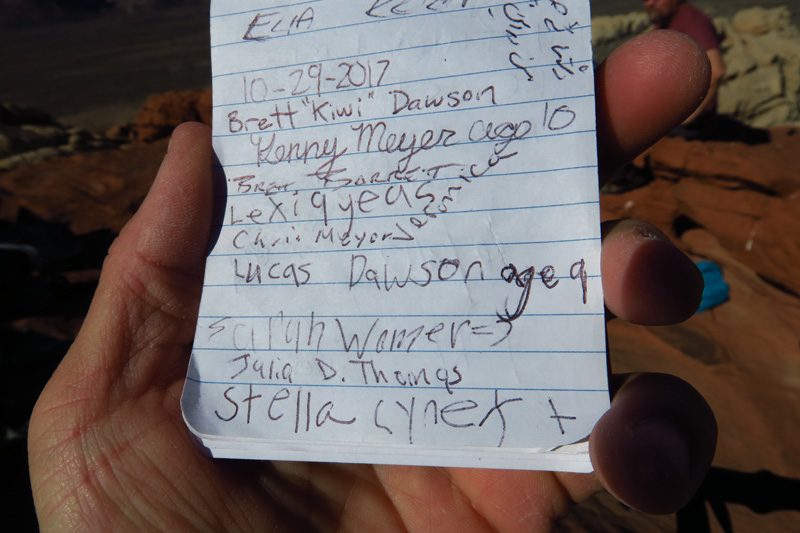 ELIA
10-29-2017
Brett "Kiwi" Dawson
Kenny Meyer age 10
Lexi 9 years
Chris Meyer
Lucas Dawson age 9
Sarah Womer =>
Julia D. Thomas
Stella